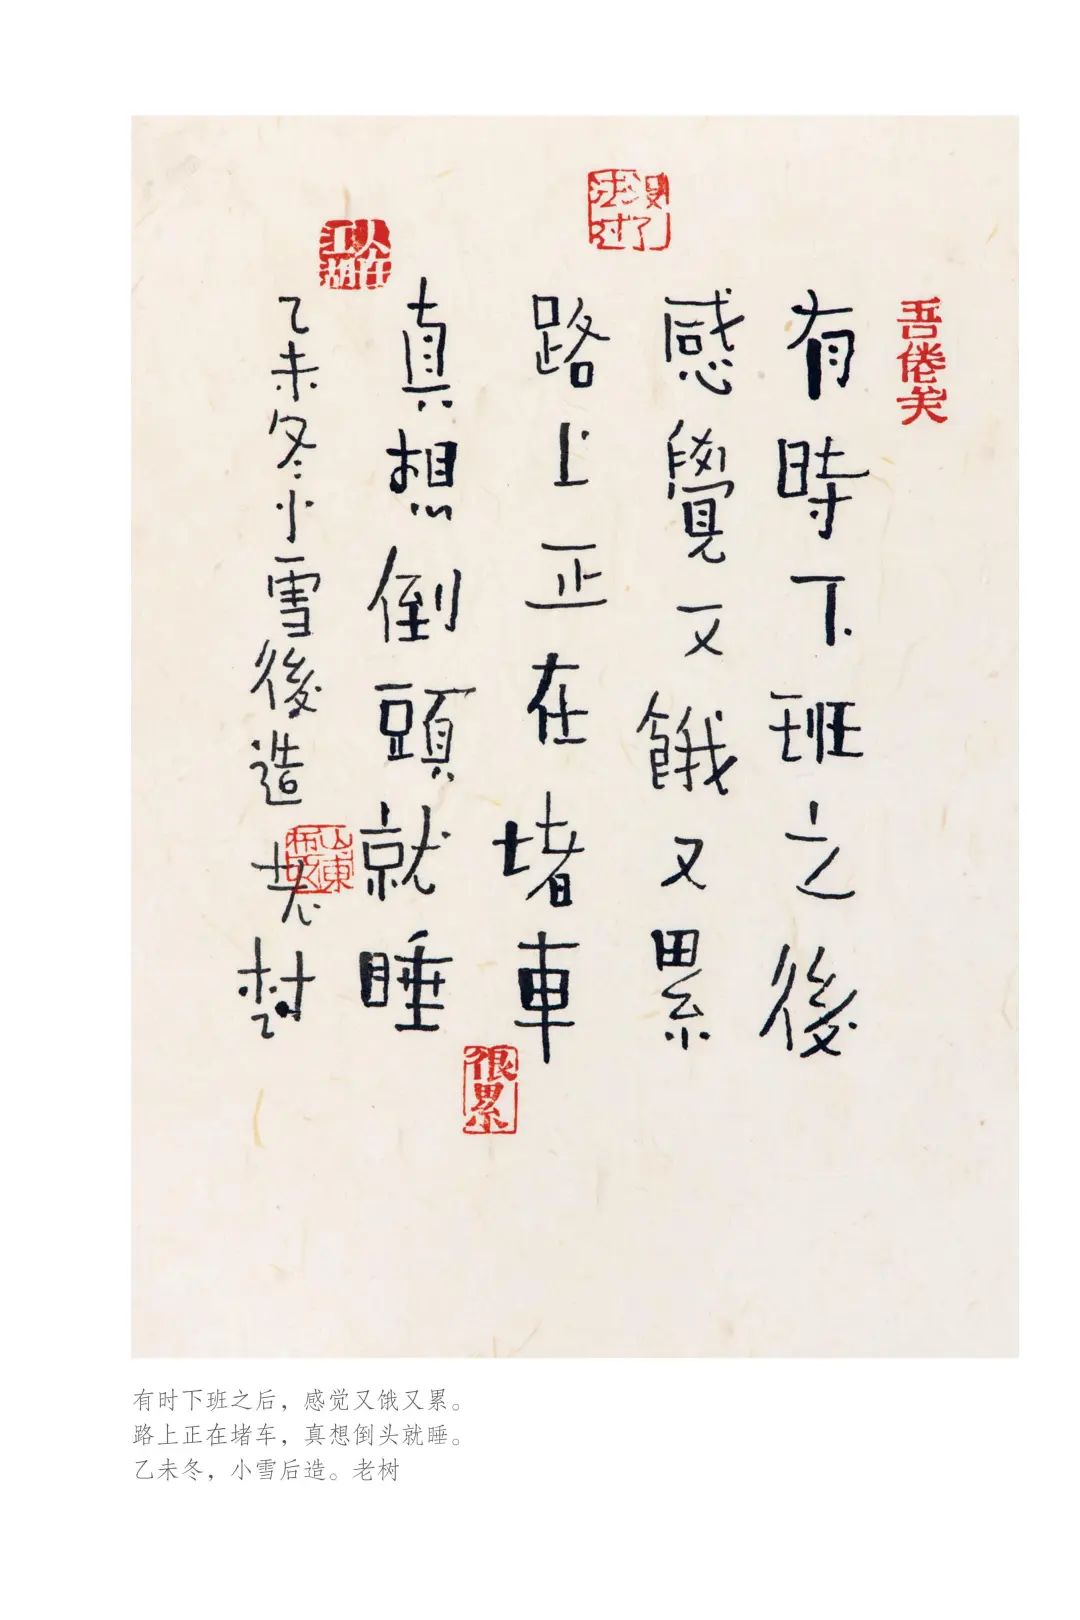 吾倦矣
有時下班之後
感覺又餓又累
路上正在堵車
真想倒頭就睡
乙未冬小雪後造老樹
没法过了
人在江湖
山東布衣
很累
有时下班之后，感觉又饿又累。
路上正在堵车，真想倒头就睡。
乙未冬，小雪后造。老树